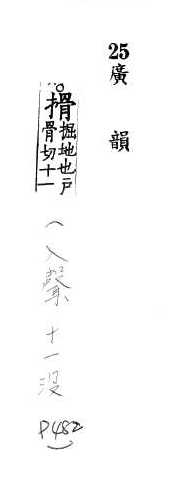 25 廣韻
搰掘地也戶骨切十一
(入聲十一沒 P482)